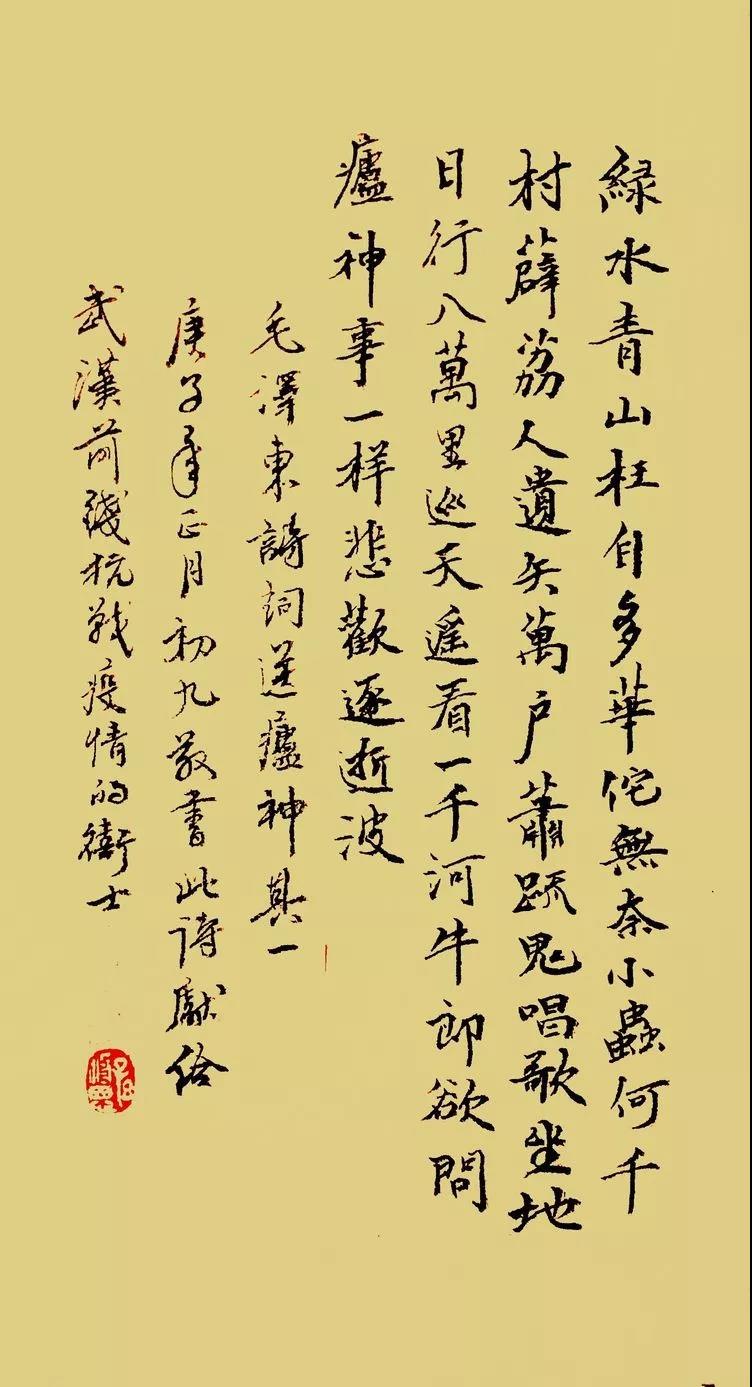 緑水青山枉自多華佗無奈小蟲何千
村薜荔人遺矢萬户蕭踈鬼唱歌坐地
日行八萬里巡天遥看一千河牛郎欲問
瘟神事一样悲歡逐逝波
毛澤東詩詞送瘟神其一
庚子年正月初九敬書此诗獻给
武漢前綫抗戰疫情的衛士